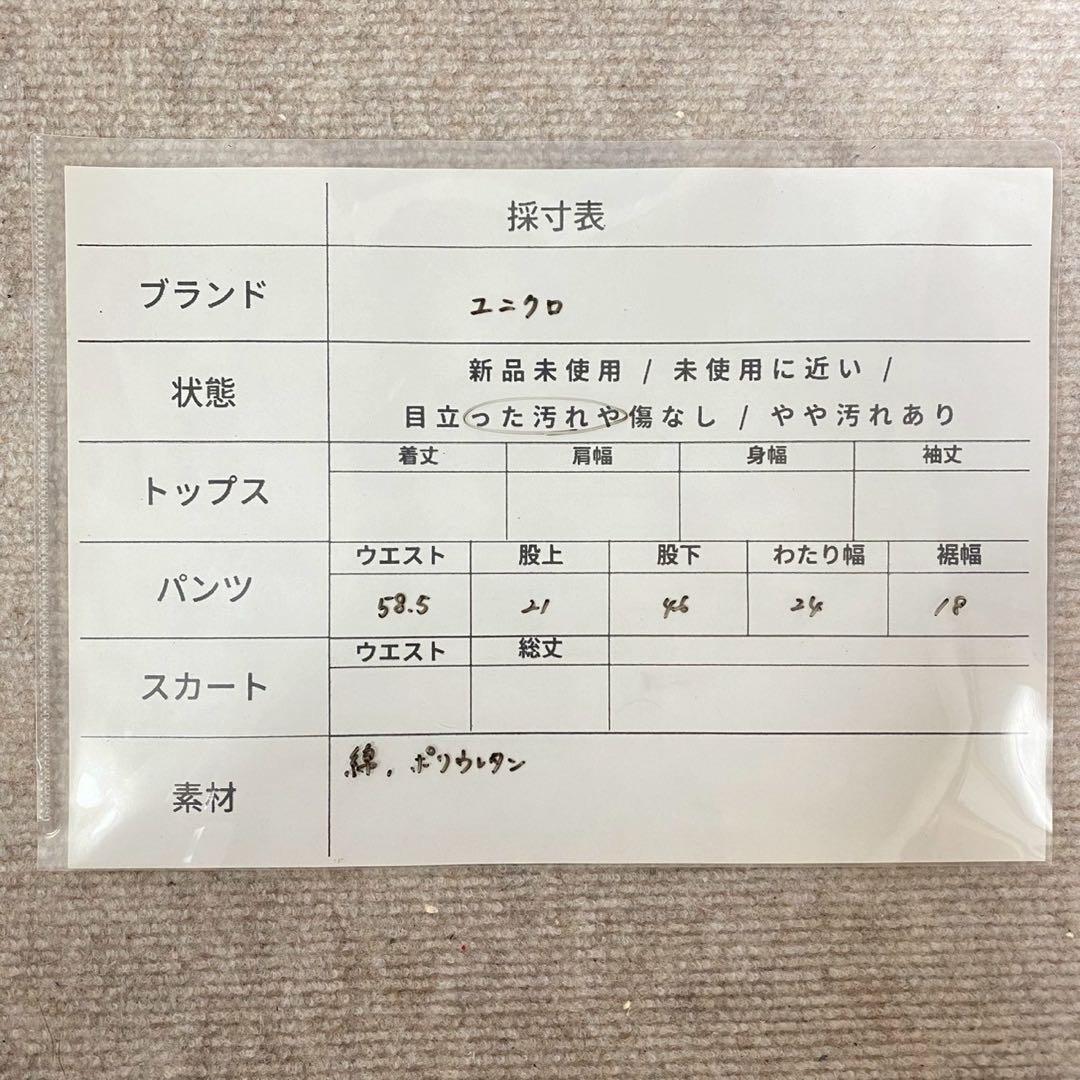 採寸表
ブランド
ユニクロ
状態
新品未使用 / 未使用に近い /
目立った汚れや傷なし / やや汚れあり
トップス
着丈 肩幅 身幅 袖丈
パンツ
ウエスト 股上 股下 わたり幅 裾幅
58.5 21 46 24 18
スカート
ウエスト 総丈
素材
綿, ポリウレタン